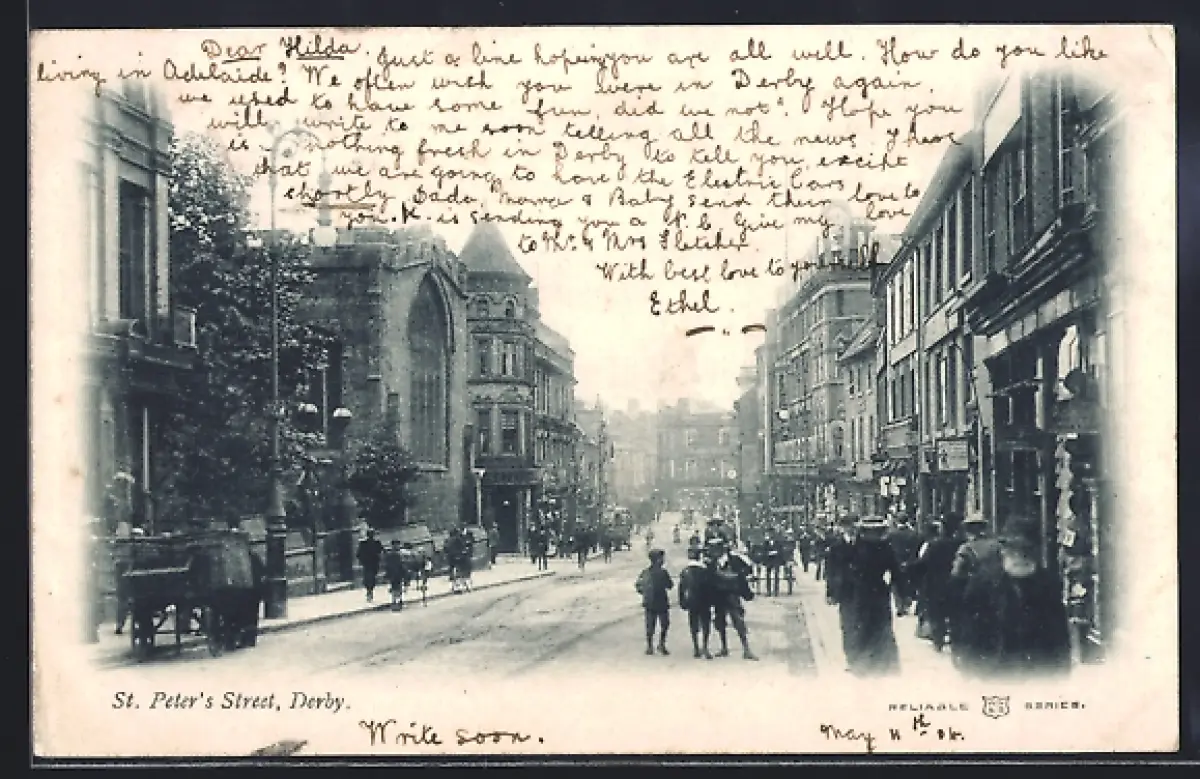 Dear Hilda. Just a line hoping you are all well. How do you like
living in Adelaide? We often wish you were in Derby again,
we used to have some fun, did we not? Hope you
will write to me soon telling all the news. There
is nothing fresh in Derby to tell you, except
that we are going to have the Electric Cars
shortly. Dada, Mama & Baby send their love to
you. K. is sending you a P.C. Give my love
to Mr. & Mrs Fletcher.
With best love to yourself
Ethel.
St. Peter's Street, Derby.
RELIABLE SERIES.
Write soon.
May 11th